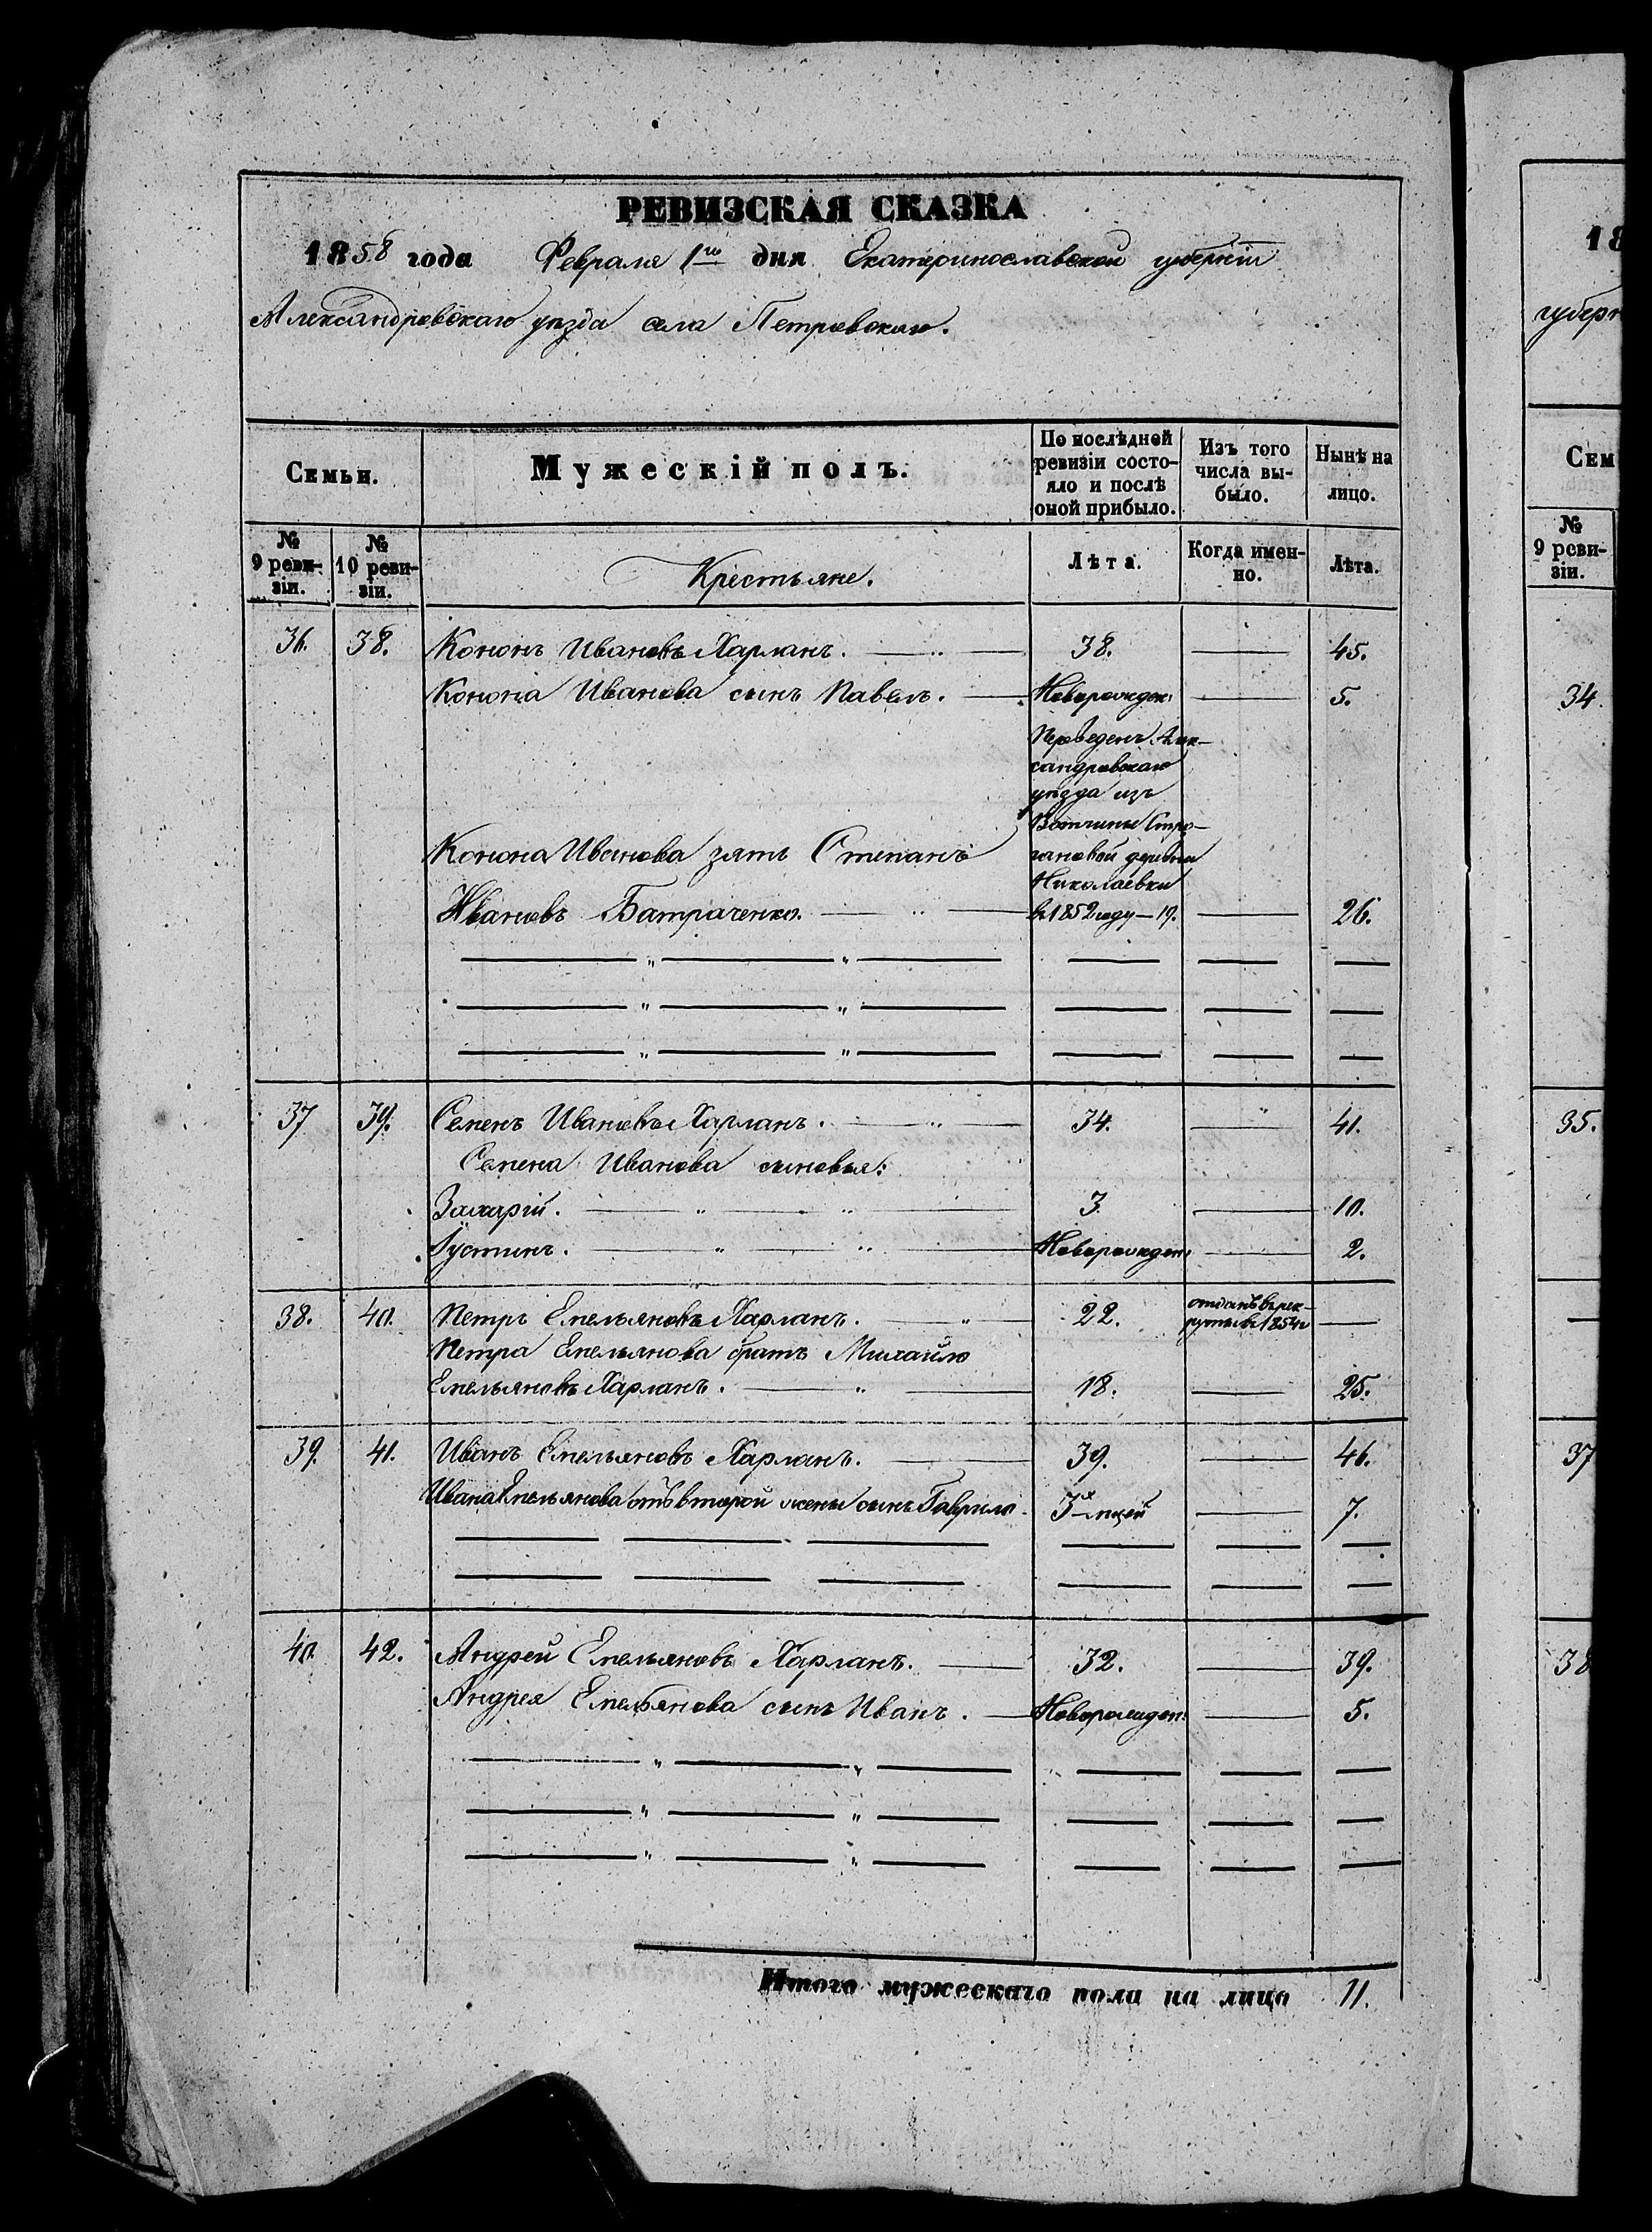 РЕВИЗСКАЯ СКАЗКА
1858 года Февраля 1го дня Екатеринославской губерніи
Александровскаго уѣзда села Петровскаго.
Семьи. Мужескій полъ. По послѣдней ревизіи состояло и послѣ оной прибыло. Изъ того числа выбыло. Нынѣ на лицо.
№ 9 ревизіи. № 10 ревизіи. Крестьяне. Лѣта. Когда именно. Лѣта.
36. 38. Кононъ Ивановъ Харланъ. 38. 45.
Конона Иванова сынъ Павелъ. Новорожден: 5.
Переведенъ Алек-
сандровскаго
уѣзда изъ
Вотчины Стро-
Конона Иванова зять Степанъ гановой деревни
Николаевки
Ивановъ Батраченко. въ 1852 году — 19. 26.
37 39. Семенъ Ивановъ Харланъ. 34. 41.
Семена Иванова сыновья:
Захарій. 3. 10.
Іустинъ. Новорожден: 2.
38. 40. Петръ Емельяновъ Харланъ. 22. отданъ въ рек-
руты въ 1854г
Петра Емельянова братъ Михайло
Емельяновъ Харланъ. 18. 25.
39. 41. Иванъ Емельяновъ Харланъ. 39. 46.
Ивана Емельянова отъ второй жены сынъ Гаврило. 3х мцей 7.
40. 42. Андрей Емельяновъ Харланъ. 32. 39.
Андрея Емельянова сынъ Иванъ. Новорожден: 5.
Итого мужескаго пола на лицо 11.
18
губерн
Сем
№ 9 ревизіи.
34.
35.
37
38